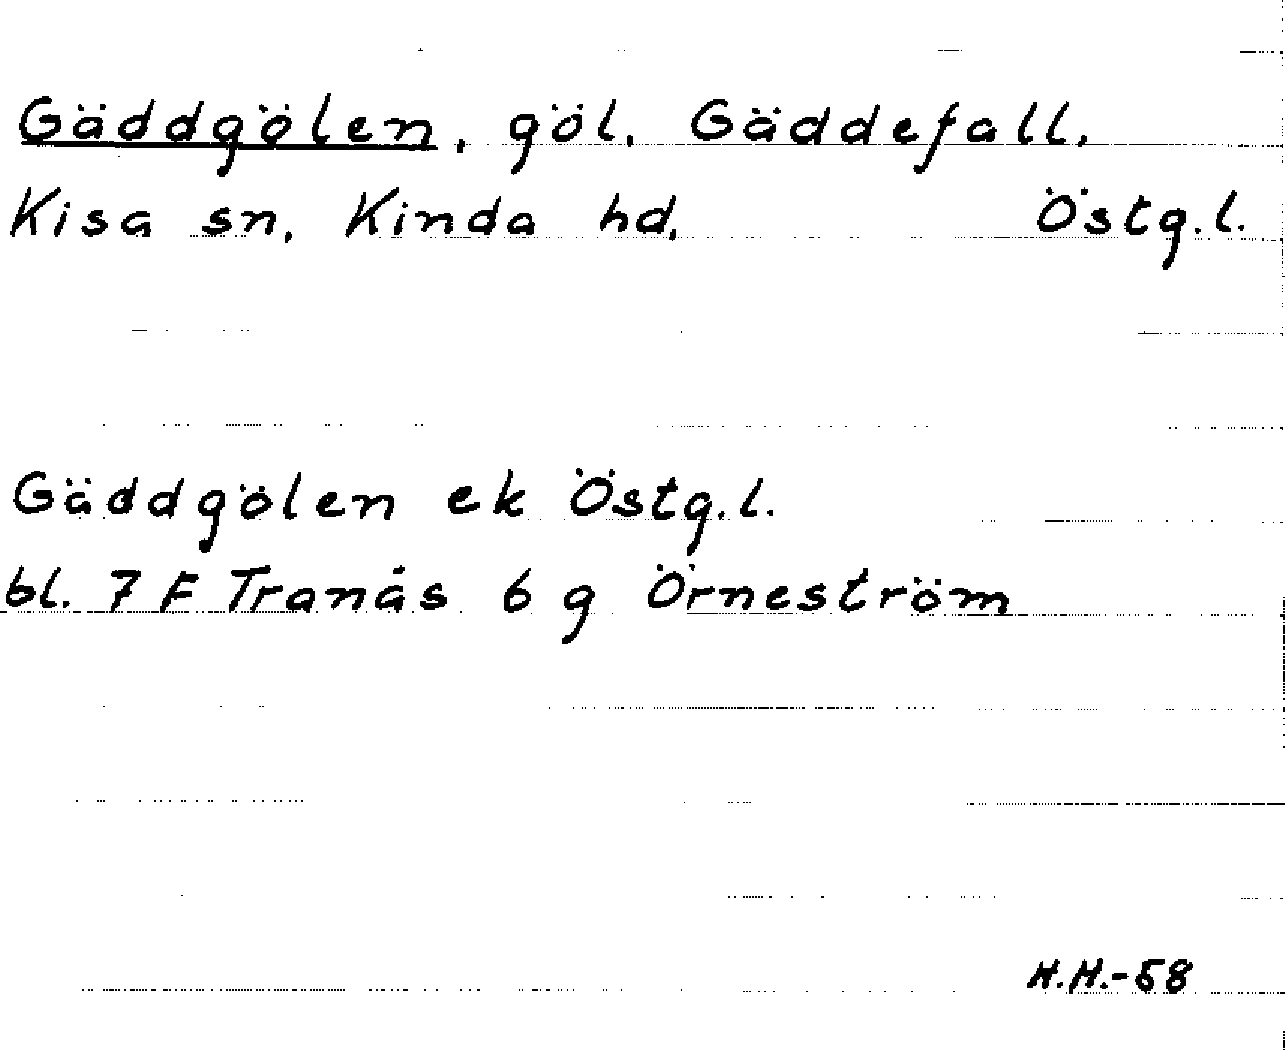 Gäddgölen, göl, Gäddefall,
Kisa sn, Kinda hd, Östg.l.
Gäddgölen ek Östg.l.
bl. 7 F Tranås 6 g Örneström
H.H.-58